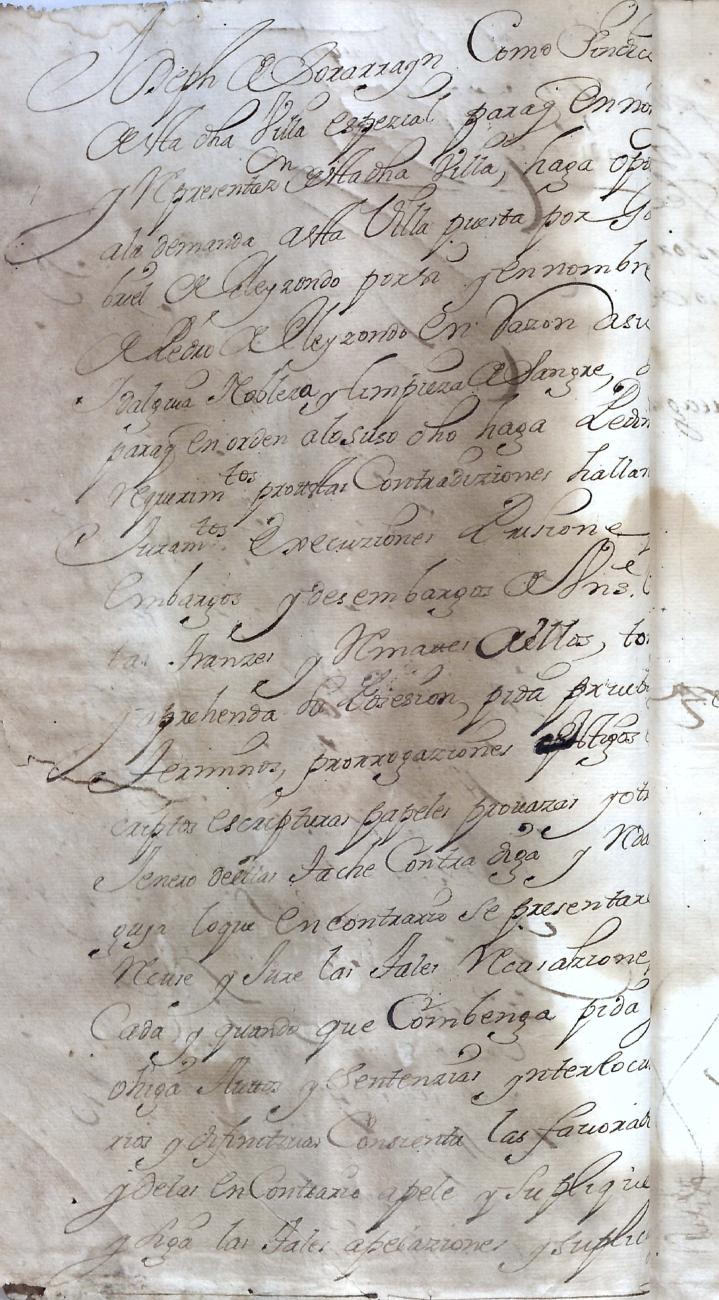 Joseph de Como Sindic
de esta dha Villa espezial paraq̃ en no
y Representaz.on de esta dha Villa, haga opo
ala demanda a esta Villa puesta por Ga
briel de Eleyzondo porsi y en nombre
de Pedro de Eleyzondo en Razon asu
Idalguia Nobleza y limpieza de Sangre,
paraq̃ en orden alo suso dho haga Pedim
requerim.tos protestas Contradiziones
Juram.tos execuziones Prisione
embargos y desembargos de
tas tranzes y Remates de ellos, to
aprehenda Posesion, pida prueb
terminos, prorrogaziones
criptos escripturas papeles prouanzas y otr
Jenero de tache Contra diga y Reda
guya loque en contrario se presentar
Recuse y Jure las tales Recusazione
Cada y quando que Combenga pida y
ohiga Autos y Sentenzias ynterlocu
rias y difinitiuas Consienta las fauorab
y delas en Contrario apele y Suplique
y siga las tales apelaziones y suplic